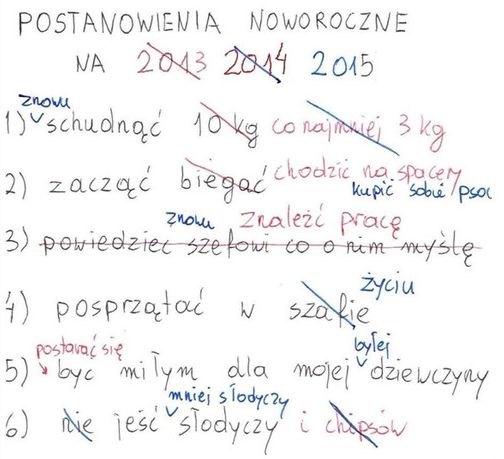 POSTANOWIENIA NOWOROCZNE
NA 2013 2014 2015
znowu
1) schudnąć 10 kg co najmniej 3 kg
chodzić na spacery
2) zacząć biegać kupić sobie psa
znowu znaleźć pracę
3) powiedzieć szefowi co o nim myślę
życiu
4) posprzątać w szafie
postarać się byłej
5) być miłym dla mojej dziewczyny
mniej słodyczy
6) nie jeść słodyczy i chipsów